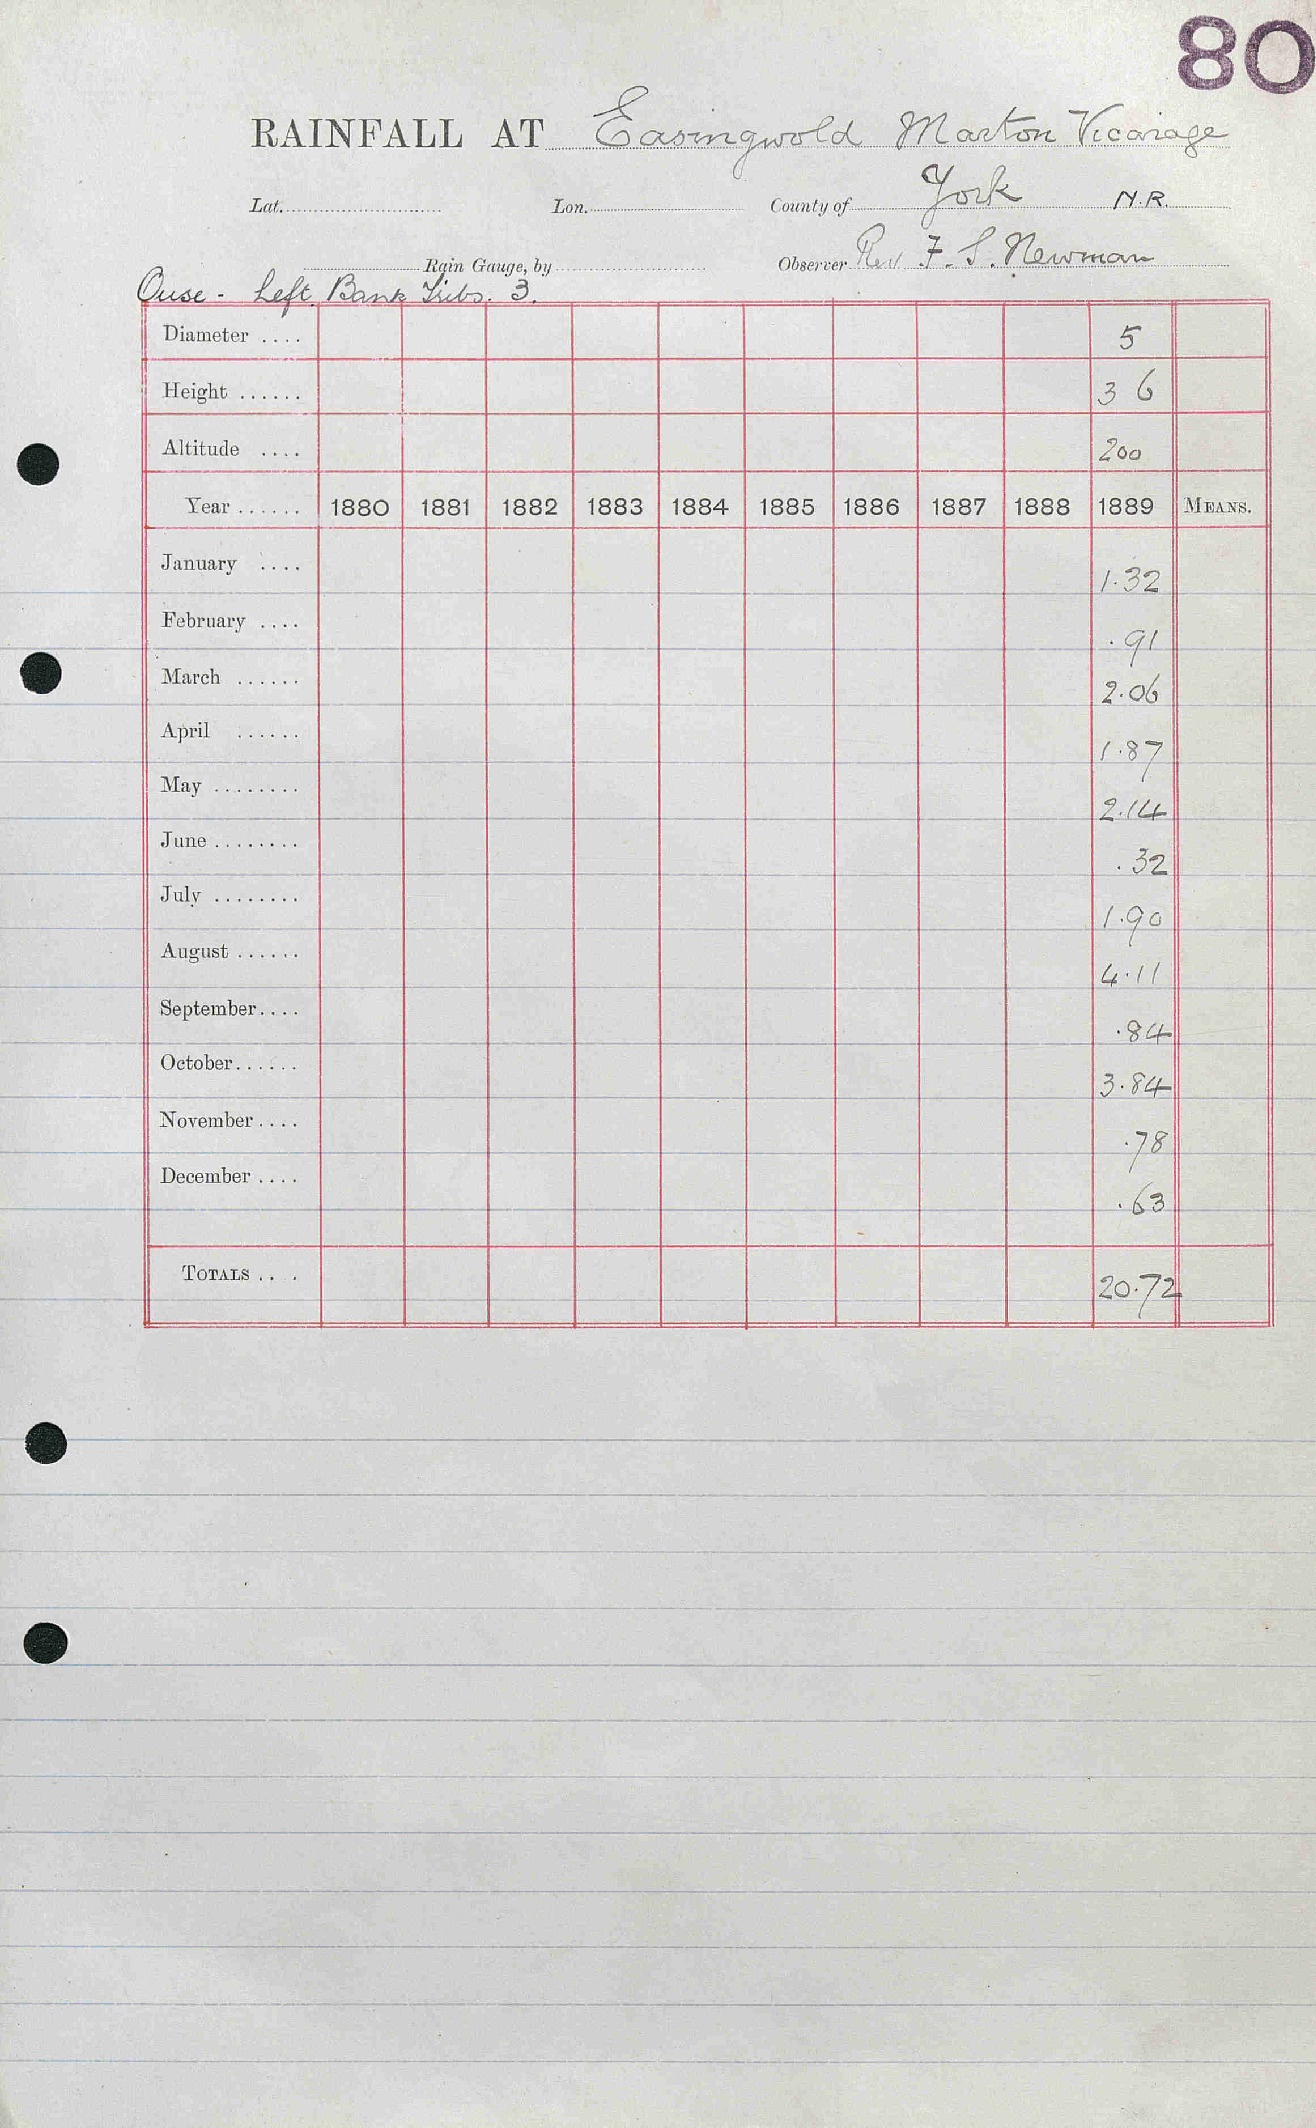 80
RAINFALL AT Easingwold Marton Vicarage
Lat. Lon. County of York N.R.
Rain Gauge, by Observer Rev F. S. Newman
Ouse - Left Bank Tribs. 3.
Diameter .... 5
Height ...... 3 6
Altitude .... 200
Year ...... 1880 1881 1882 1883 1884 1885 1886 1887 1888 1889 MEANS.
January .... 1.32
February .... .91
March ...... 2.06
April ...... 1.87
May ........ 2.14
June ........ .32
July ........ 1.90
August ...... 4.11
September.... .84
October...... 3.84
November.... .78
December.... .63
TOTALS .... 20.72